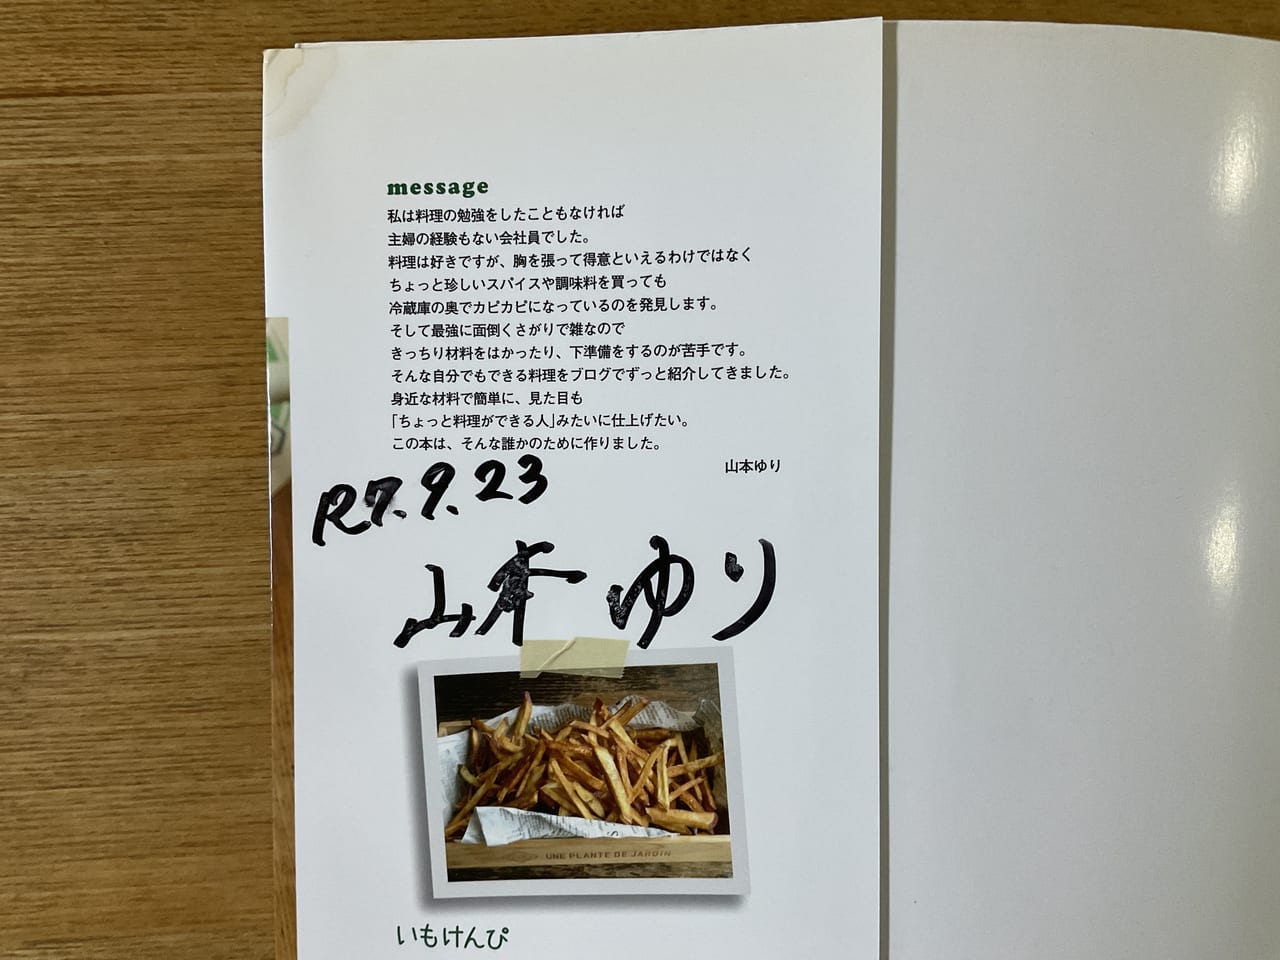 message
私は料理の勉強をしたこともなければ
主婦の経験もない会社員でした。
料理は好きですが、胸を張って得意といえるわけではなく
ちょっと珍しいスパイスや調味料を買っても
冷蔵庫の奥でカピカピになっているのを発見します。
そして最強に面倒くさがりで雑なので
きっちり材料をはかったり、下準備をするのが苦手です。
そんな自分でもできる料理をブログでずっと紹介してきました。
身近な材料で簡単に、見た目も
「ちょっと料理ができる人」みたいに仕上げたい。
この本は、そんな誰かのために作りました。
山本ゆり
R7.9.23
山本ゆり
UNE PLANTE DE JARDIN
いもけんぴ